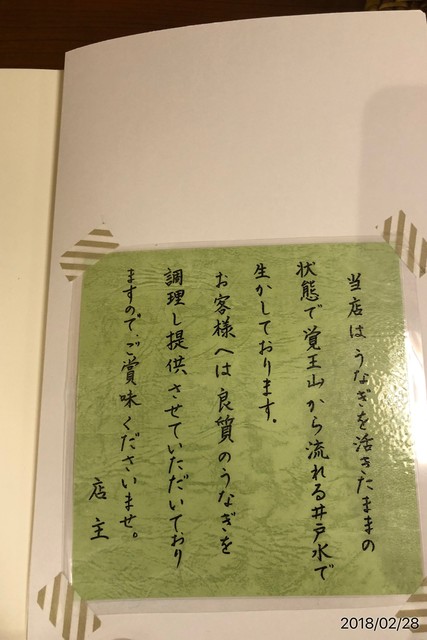 当店はうなぎを活きたままの
状態で覚王山から流れる井戸水で
生かしております。
お客様へは良質のうなぎを
調理し提供させていただいており
ますので、ご賞味くださいませ。
店主
2018/02/28